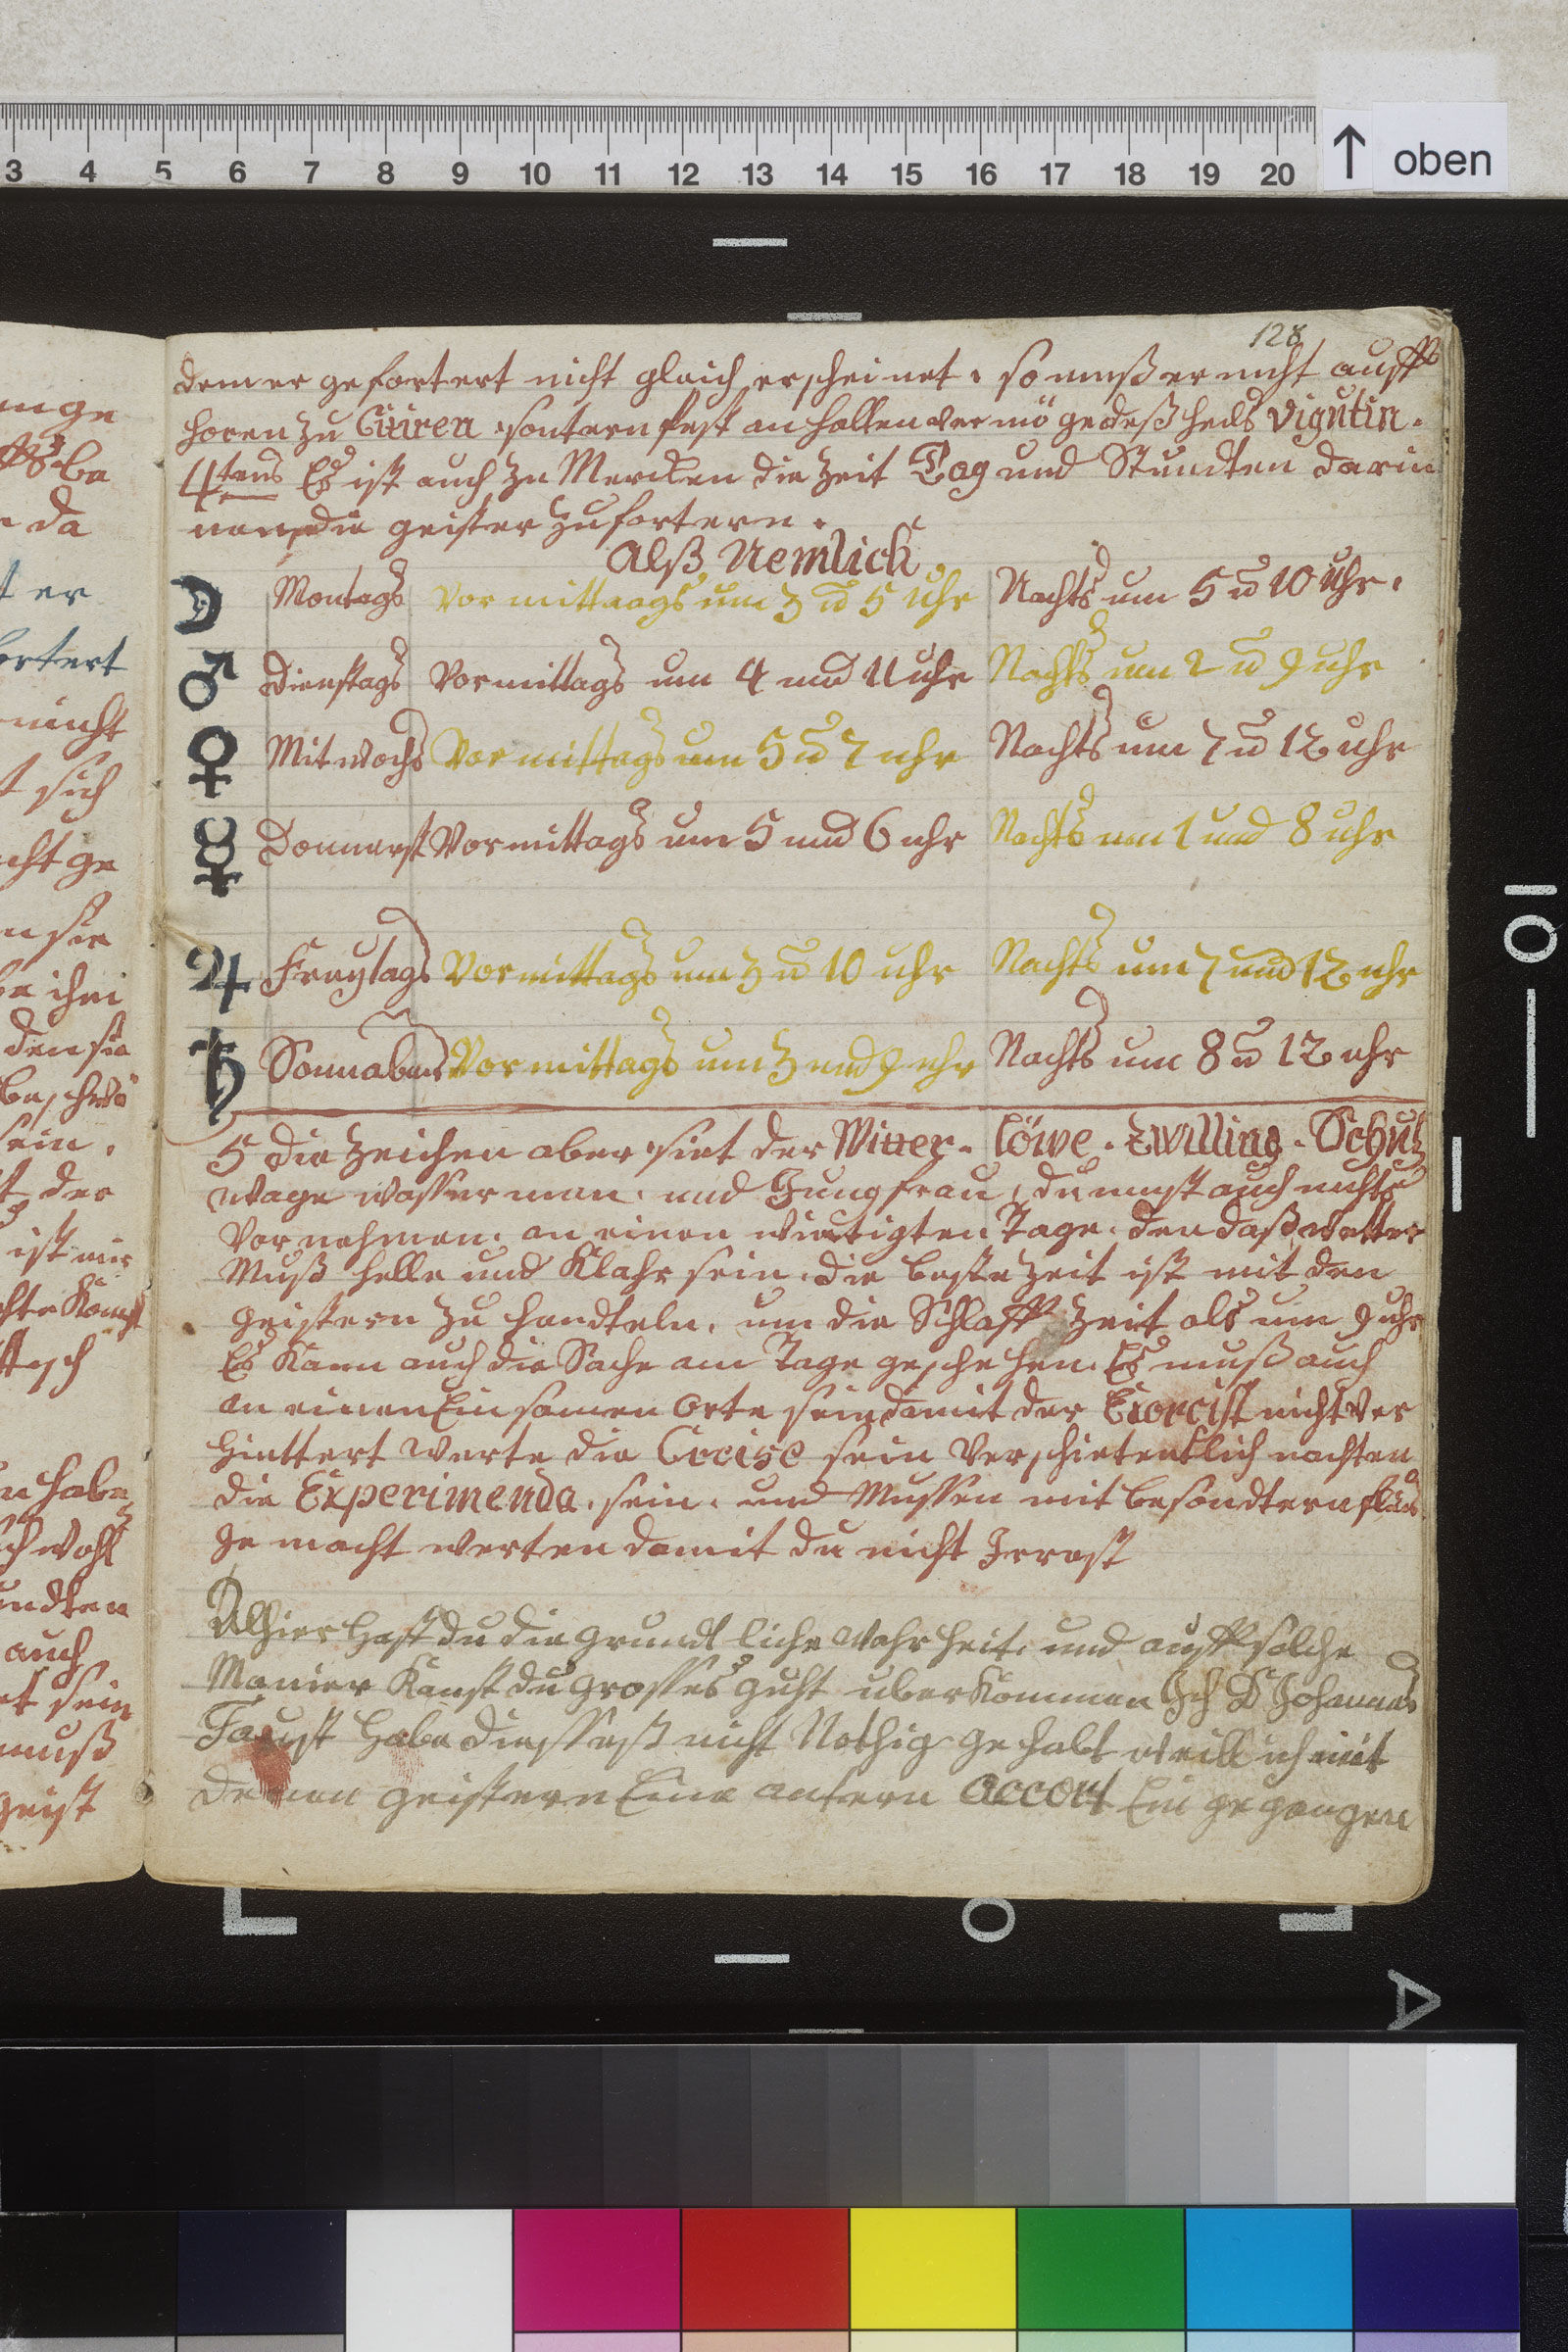 3 4 5 6 7 8 9 10 11 12 13 14 15 16 17 18 19 20
oben
128
dem er gefortert nicht gleich erscheinet. so muß er nicht auff
horen zu Citiren. sontern fest an halten ver mö ge deß heils vigntin.
4tens Es ist auch zu Mercken die Zeit Tag und Stundten darin
nen, die geister zu fortern.
Alß Nemlich
☽ Montags Vormittaags um 3 u 5 Uhr Nachts um 5 u 10 Uhr.
♂ Dienstags Vormittags um 4 und 11 uhr Nachts um 2 u 9 uhr
♀ Mitwochs Vormittags um 5 u 7 uhr Nachts um 7 u 12 uhr
☿ Donnerst Vormittags um 5 und 6 uhr Nachts um 1 und 8 uhr
♃ Freytags Vormittags um 3 u 10 uhr Nachts um 7 und 12 uhr
♄ Sonnabens Vormittags um 3 und 9 uhr Nachts um 8 u 12 uhr
5 Die Zeichen aber sint der Witter. Löwe. Zwilling. Schutz
wage wasserman. und Jungfrau, du must auch nichts
vor nehmen. an einen wintigten Tage. den daß wetter
Muß helle und Klahr sein. die beste Zeit ist mit den
geistern zu handteln. um die Schlaff Zeit als um 9 uhr
Es Kann auch die Sache am Tage gesche hen. Es muß auch
an einen Einsamen Orte sein damit der Exorcist nicht ver
hinttert werte die Creise sein verschietentlich nachten
die Experimenda. sein. und Mussen mit besondtern fleis
ge macht werten damit du nicht Irrest
Alhier hast du die grundt liche wahr heit. und auff solche
Manier Kanst du grosses guht uberkommen Ich D Johannes
Faust habe diesseß nicht Nothig gehabt weill ich mit
denen geistern Eine antern accort Ein gegangen